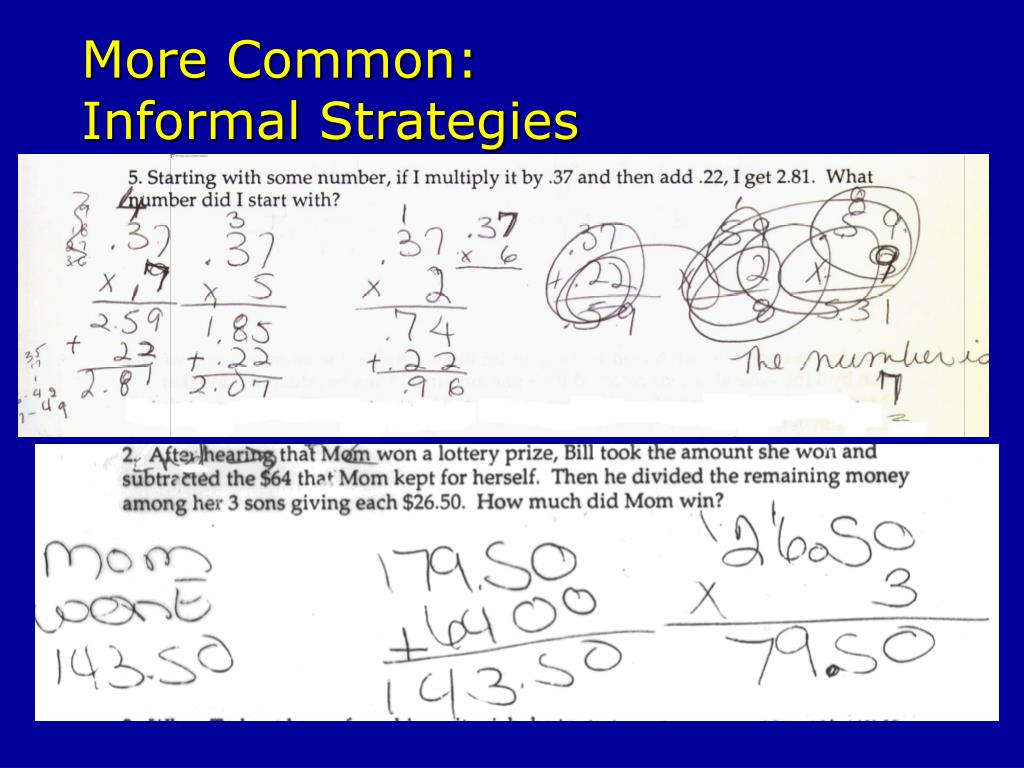 More Common:
Informal Strategies
5. Starting with some number, if I multiply it by .37 and then add .22, I get 2.81. What
number did I start with?
4
.37
x 7
2.59
+ 22
2.81
3
.37
x 5
1.85
+ .22
2.07
1
.37
x 2
.74
+ .22
.96
.37
x 6
.37
+ .22
.59
59
x 2
8
8
.59
x 9
5.31
The number is
7
2. After hearing that Mom won a lottery prize, Bill took the amount she won and
subtracted the $64 that Mom kept for herself. Then he divided the remaining money
among her 3 sons giving each $26.50. How much did Mom win?
mom
wont
143.50
179.50
+6400
143.50
26.50
x 3
79.50